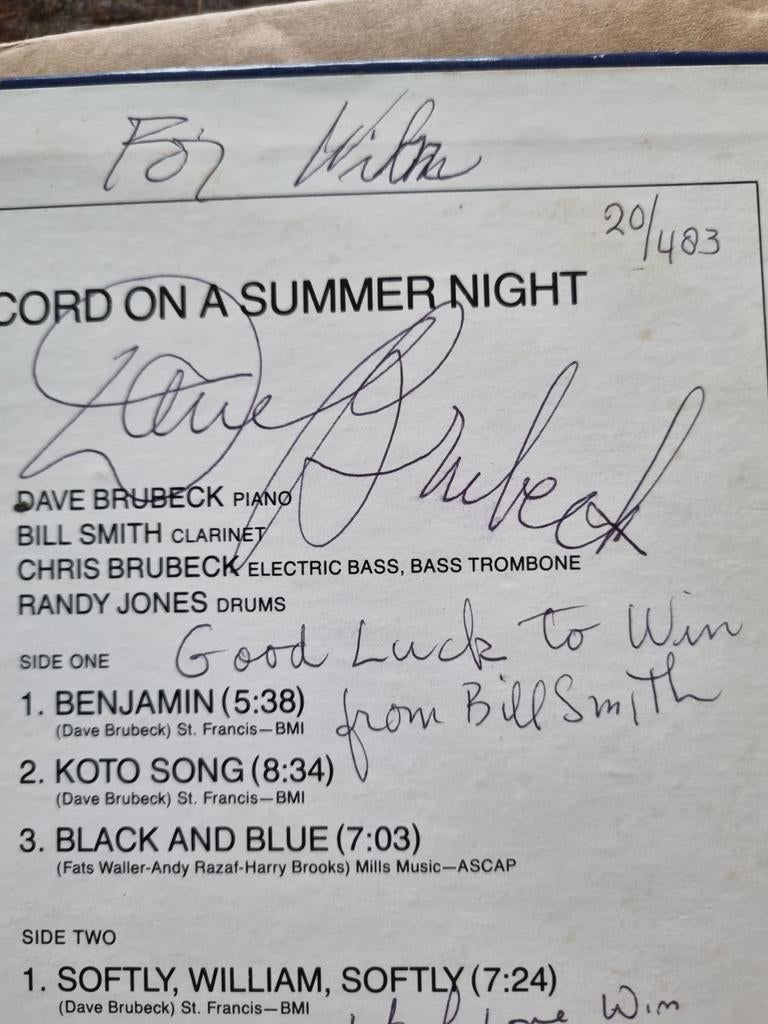 For Wilm
20/483
CORD ON A SUMMER NIGHT
Dave Brubeck
DAVE BRUBECK PIANO
BILL SMITH CLARINET
CHRIS BRUBECK ELECTRIC BASS, BASS TROMBONE
RANDY JONES DRUMS
Good Luck to Wim
from Bill Smith
SIDE ONE
1. BENJAMIN (5:38)
(Dave Brubeck) St. Francis—BMI
2. KOTO SONG (8:34)
(Dave Brubeck) St. Francis—BMI
3. BLACK AND BLUE (7:03)
(Fats Waller-Andy Razaf-Harry Brooks) Mills Music—ASCAP
SIDE TWO
1. SOFTLY, WILLIAM, SOFTLY (7:24)
(Dave Brubeck) St. Francis—BMI
Wim